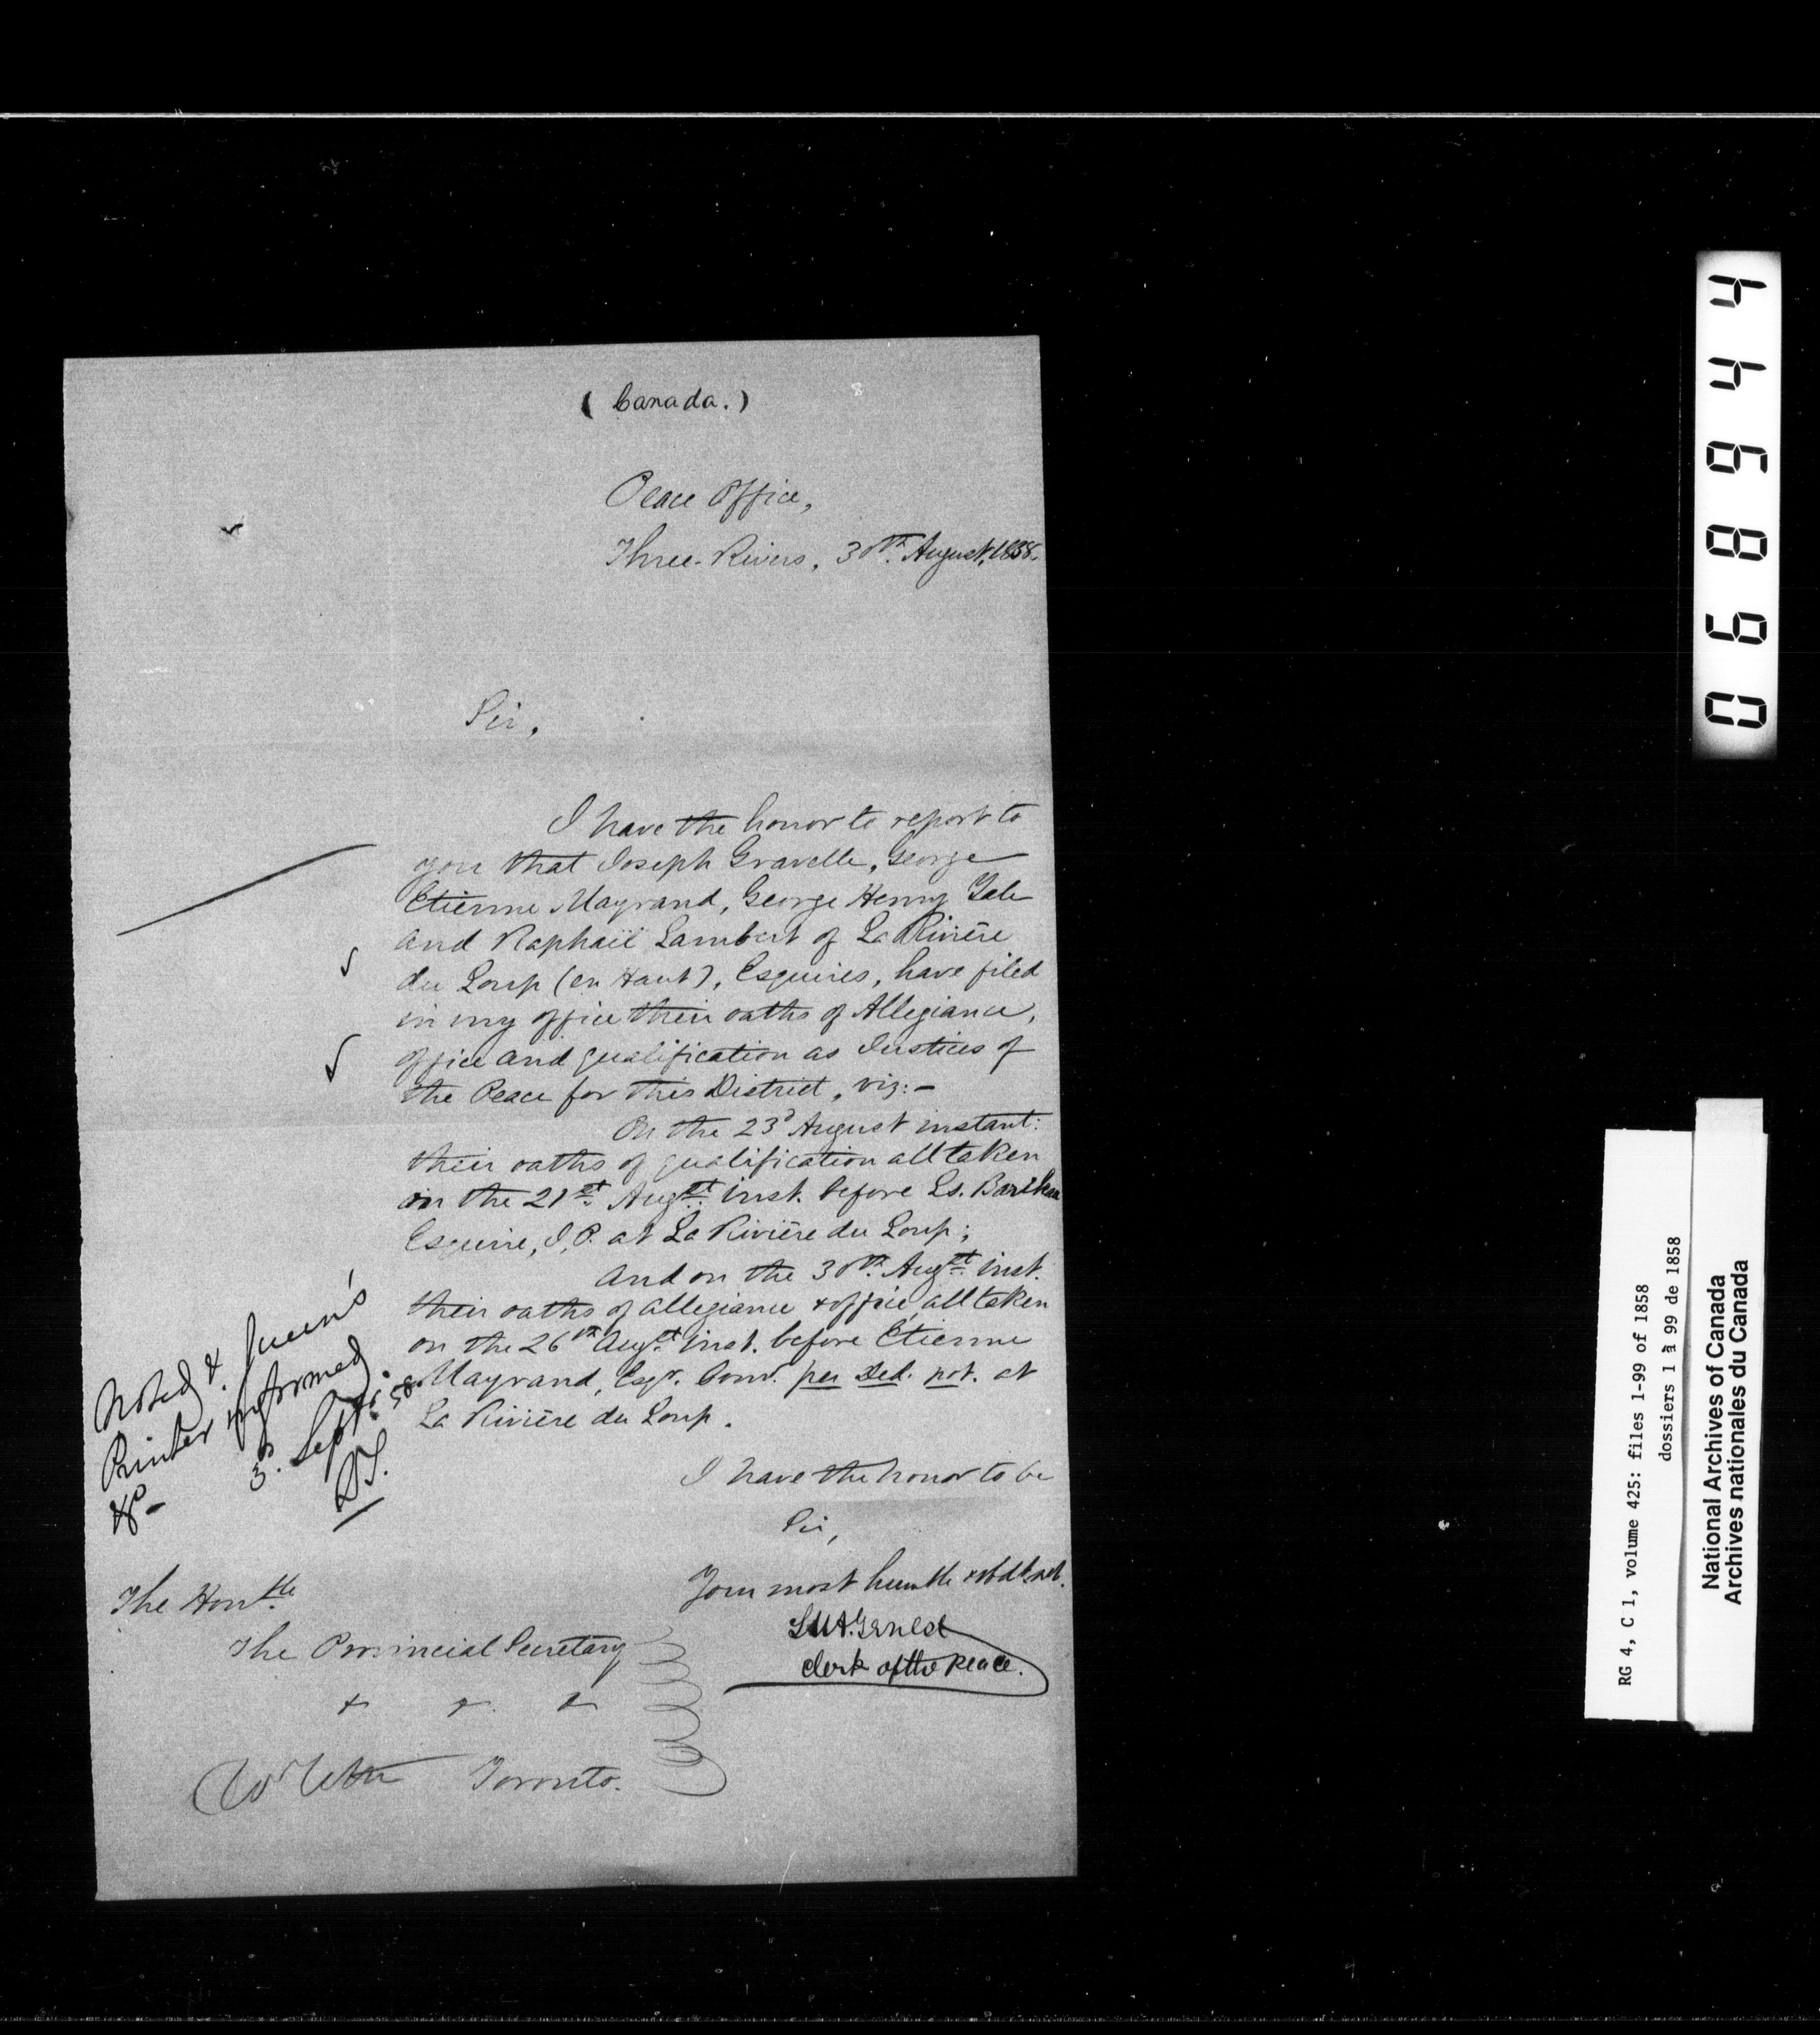 ( Canada. )
Peace Office,
Three-Rivers, 30th. August, 1858.
Sir,
I have the honor to report to
you that Joseph Gravelle, George
Etienne Mayrand, George Henry Yale
and Raphaël Lambert of La Rivière
du Loup (en Haut), Esquires, have filed
in my office their oaths of Allegiance,
office and qualification as Justices of
the Peace for this District, viz:-
On the 23d August instant:
their oaths of qualification all taken
on the 21st. Augst. inst. before Ls.
Esquire, J.P. at La Rivière du Loup;
And on the 30th. Augst. inst.
their oaths of allegiance & office all taken
on the 26th Augst. inst. before Etienne
Mayrand, Esqr. Comr. per Ded. pot. at
La Rivière du Loup.
I have the honor to be
Sir,
Your most humble & obdt. st.
Clerk of the Peace.
Noted & Queen's
Printer informed
3. Sept. 58.
The Honble.
The Provincial Secretary
& & &
Toronto.
068944
RG 4, C 1, volume 425: files 1-99 of 1858
dossiers 1 à 99 de 1858
National Archives of Canada
Archives nationales du Canada